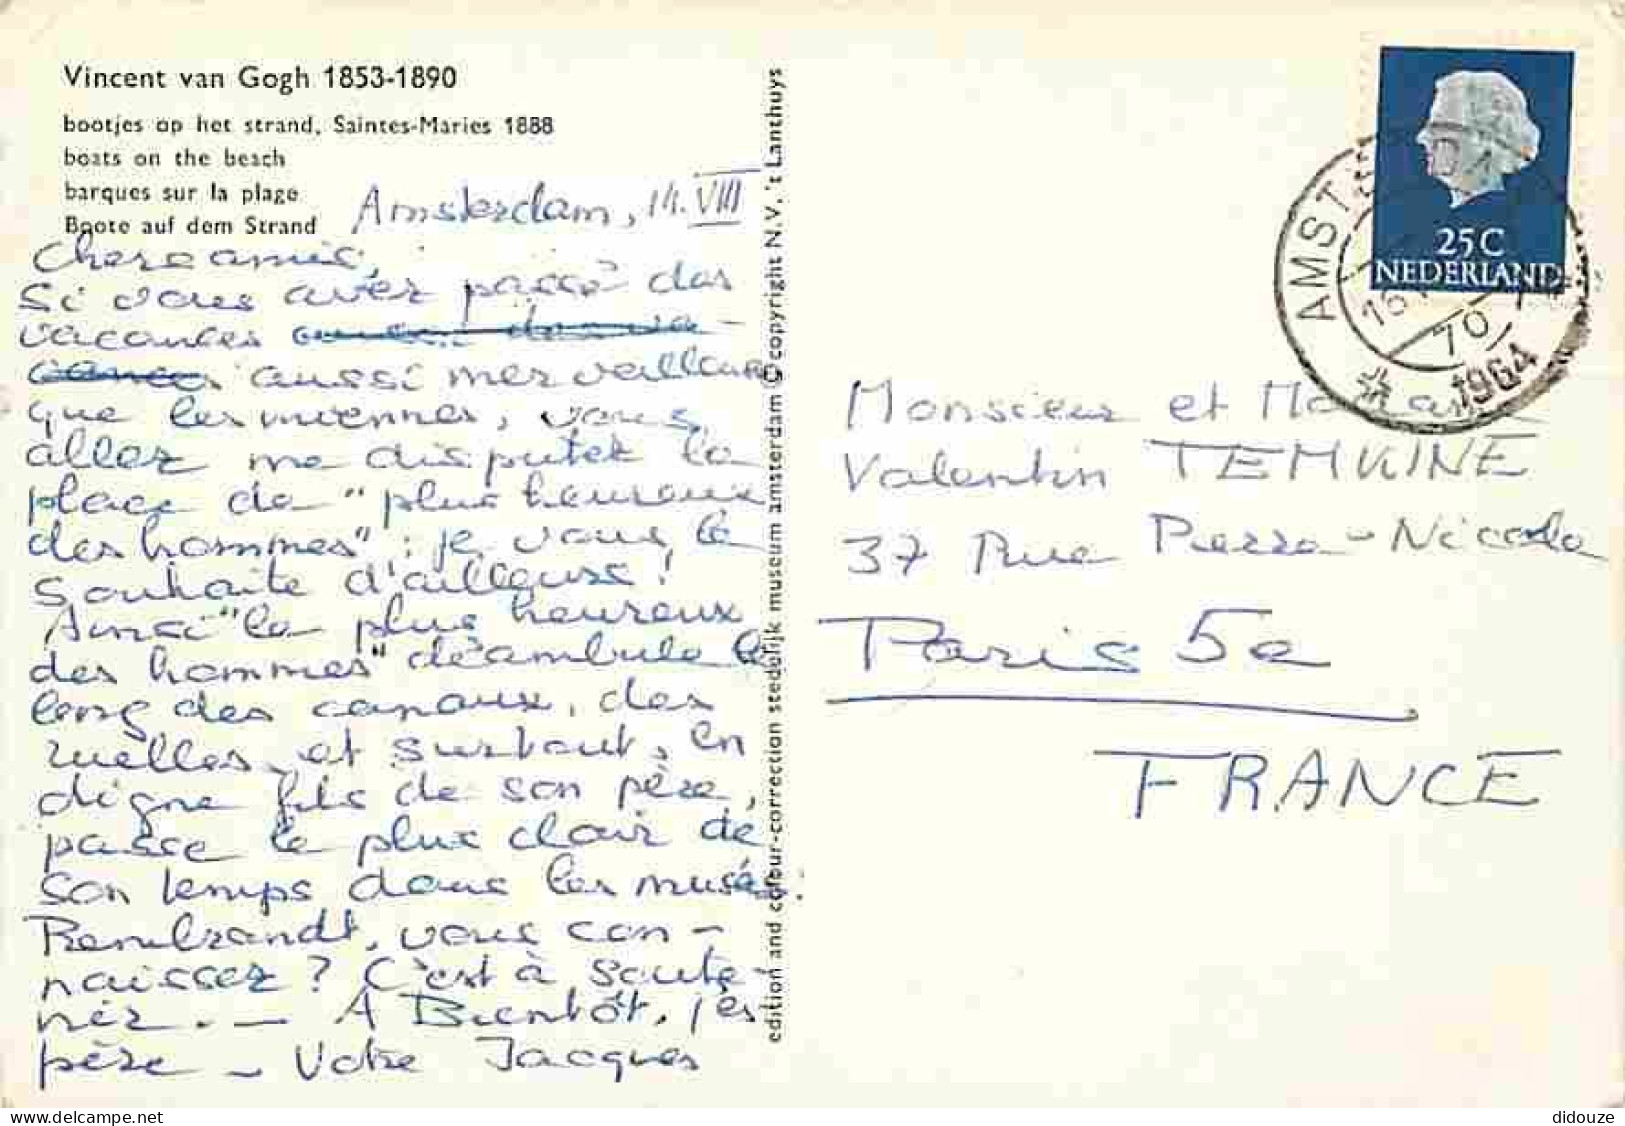 Vincent van Gogh 1853-1890
bootjes op het strand, Saintes-Maries 1888
boats on the beach
barques sur la plage
Boote auf dem Strand
Amsterdam, 14.VIII
Chers amis,
Si vous avez passé des
vacances
aussi merveilleuses
que les miennes, vous
allez me disputer la
place de "plus heureux
des hommes" : je vous le
souhaite d'ailleurs !
Ainsi "le plus heureux
des hommes" déambule le
long des canaux, des
ruelles, et surtout, en
digne fils de son père,
passe le plus clair de
son temps dans les musées.
Rembrandt, vous con-
naissez ? C'est à Saute-
A Bientôt, j'es
père - Votre Jacques
edition and colour-correction stedelijk museum amsterdam © copyright N.V. 't Lanthuys
25C
NEDERLAND
AMSTERDAM
16
70
1964
Monsieur et Madame
Valentin TEMKINE
37 Rue Pierre-Nicole
Paris 5e
FRANCE
didouze